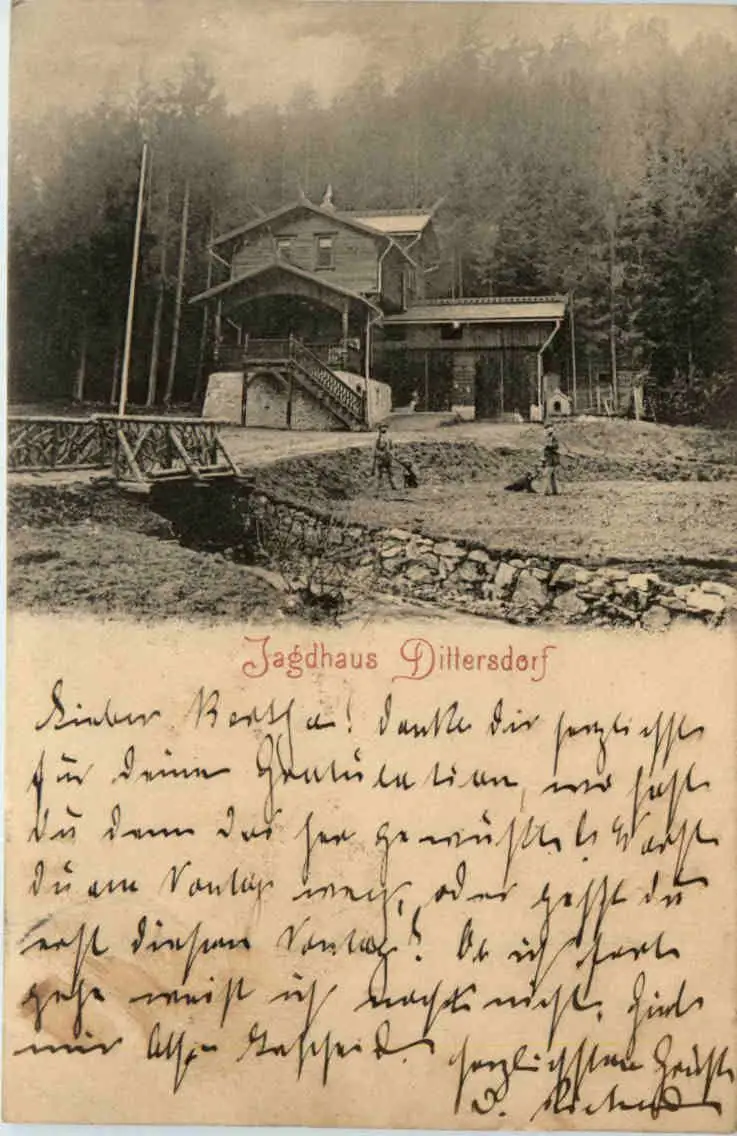 Jagdhaus Dittersdorf
Lieber Bertha! danke dir herzlichst
für deine Gratulation, wo hast
du denn das her gewußt? Warst
du am Sontag weg, oder gehst du
erst diesen Sontag? Ob ich fort
gehe weist ich noch nicht.
mir also Bescheid. herzlichsten Grüße
d.